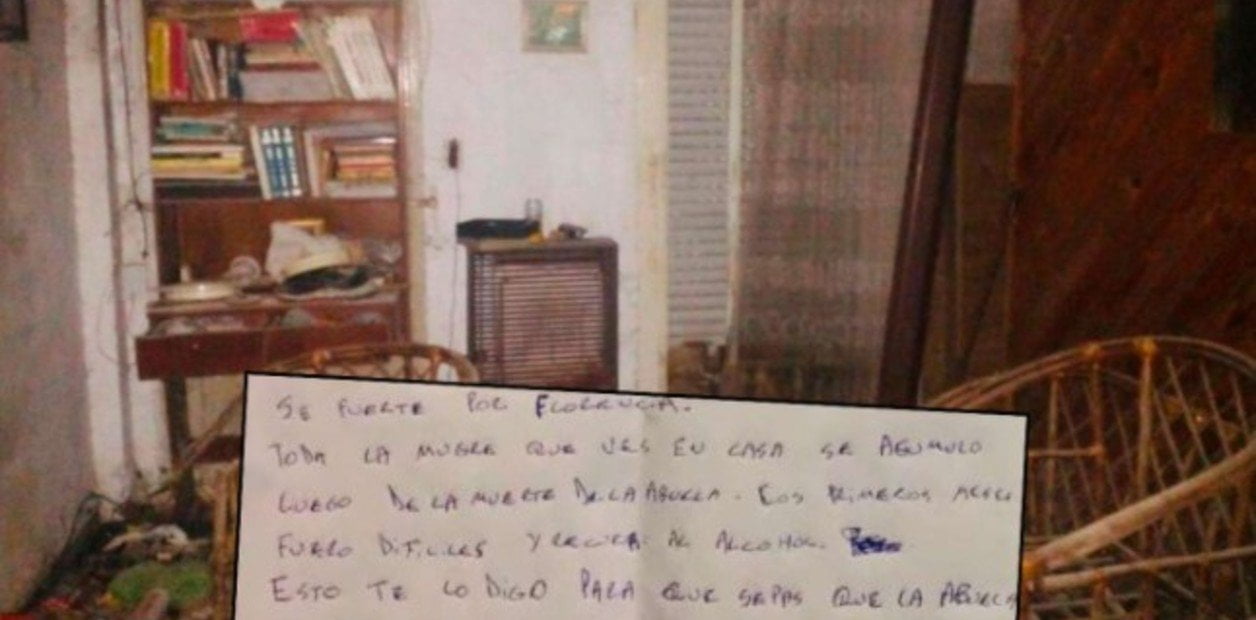 SE FUERTE POR FLORENCIA.
TODA LA MUGRE QUE VES EN CASA SE AGUMULO
LUEGO DE LA MUERTE DE LA ABUELA. LOS PRIMEROS MESES
FUERO DIFICILES Y RECURRI AL ALCOHOL.
ESTO TE LO DIGO PARA QUE SEPAS QUE LA ABUELA